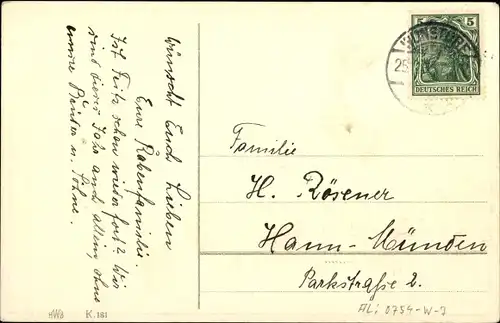 Wünscht Euch Lieben
Eure Rabenfamilie.
Ist Fritz schon wieder fort? Wir
sind dieses Jahr auch allein ohne
unsere Brüder u. Söhne.
5
DEUTSCHES REICH
25
Familie
H. Rösener
Hann-Münden
Parkstraße 2.
K. 181
ALi 0754-W-J